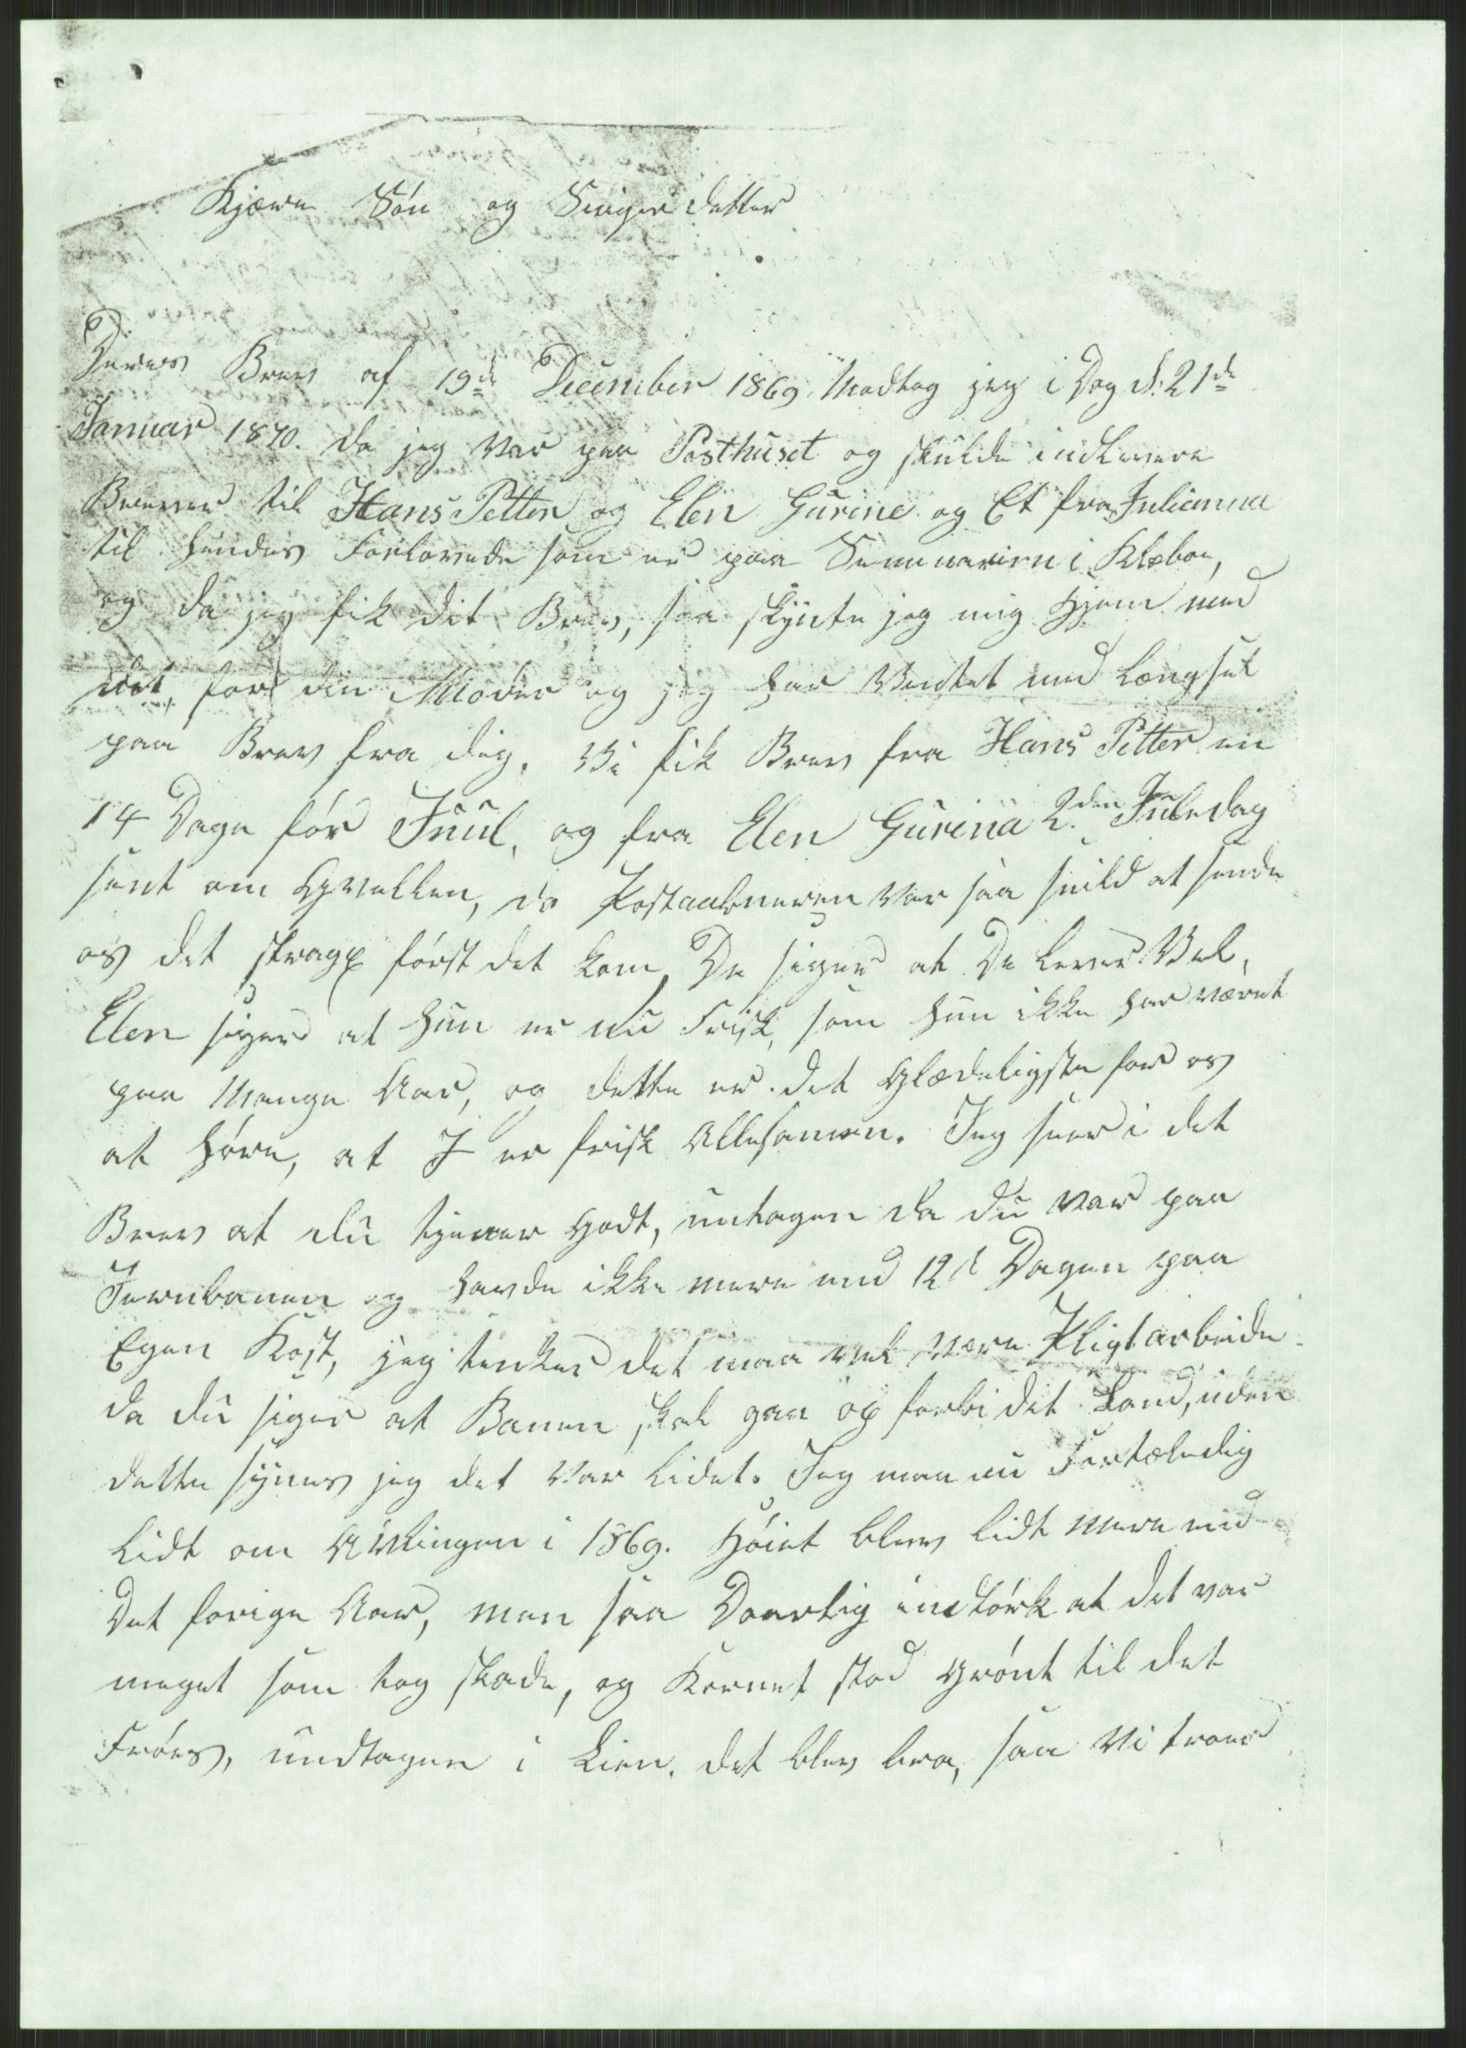 Kjære Søn og Svigerdatter
Deres Brev af 19de December 1869 Modtog jeg i Dag d. 21de
Januar 1870. da jeg Var paa Posthuset og skulde indlevere
Brever til Hans Petter og Elen Gurine og Et fra Julianna
til hendes Forlovede som er paa Semenarium i Klæbøe,
og da jeg fik dit Brev, saa skynte jeg mig Hjem med
det, for din Moder og jeg har Ventet med Længsel
paa Brev fra dig. Vi fik Brev fra Hans Petter en
14 Dage før Juul, og fra Elen Gurina 2den Juledag
sent om Qvellen, da Postaabneren Var saa snild at sende
os det strax først det kom, De siger at De lever Vel,
Elen siger at hun er nu Frisk, som hun ikke har været
paa Mange Aar, og dette er det Glædeligste for os
at høre, at I er frisk Allesamen. Jeg seer i det
Brev at du tjener Godt, untagen da du Var paa
Jernbanen og havde ikke mere end 12 s Dagen paa
Egen Kost, jeg tenker det maa vel Være Pligtarbeide
da du siger at Banen skal gaa op forbi det Land, uden
dette synes jeg det Var Lidet. Jeg maa nu Fortæle dig
Lidt om Avlingen i 1869. Høiet blev lidt Mere end
Det forige Aar, men saa Daarlig intørk at det var
meget som tog skade, og Kornet stod Grønt til det
Frøes, undtagen i Lien. det blev bra, saa Vi troer